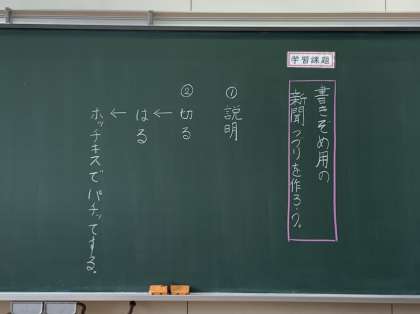 学習課題
書きぞめ用の
新聞つづりを作ろう。
① 説明
② 切る
← はる
← ホッチキスでパチッてする。